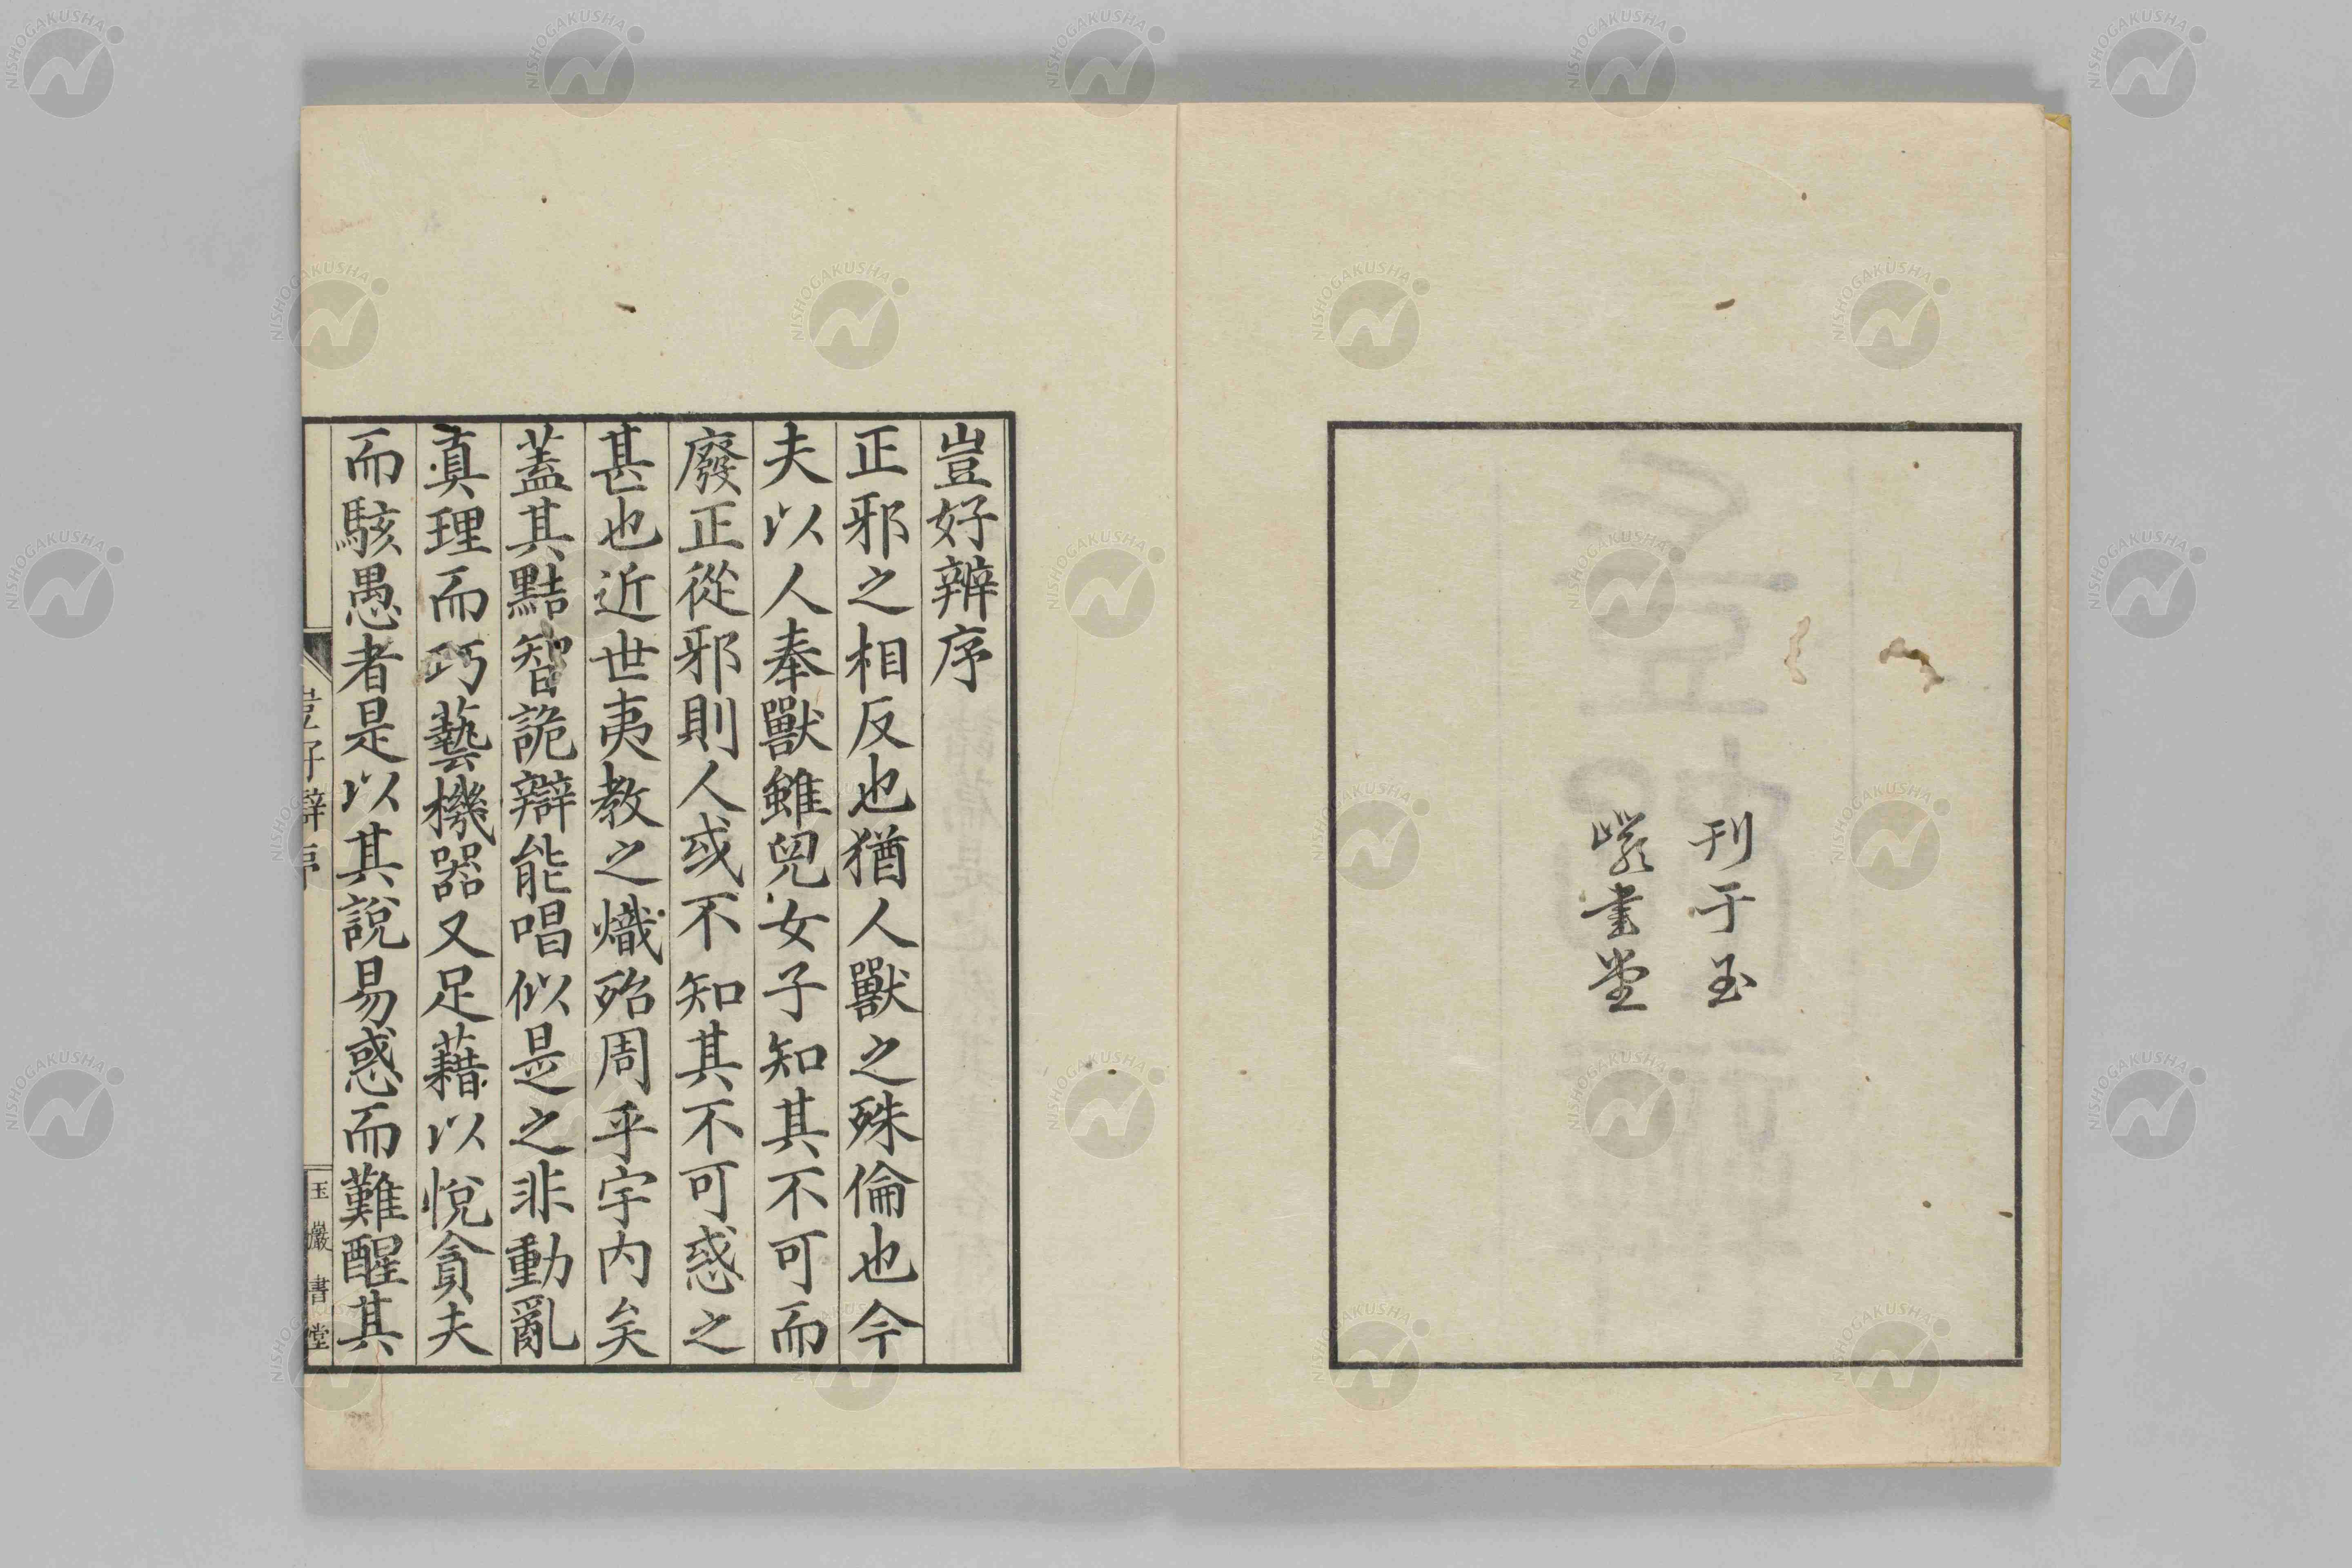 刊于玉
巖書堂
豈好辨序
正邪之相反也猶人獸之殊倫也今
夫以人奉獸雖兒女子知其不可而
廢正從邪則人或不知其不可惑之
甚也近世夷教之熾殆周乎宇内矣
蓋其黠智詭辯能唱似是之非動亂
真理而巧藝機器又足藉以悅貪夫
而駭愚者是以其說易惑而難醒其
豈好辯序
玉巖書堂
NISHOGAKUSHA